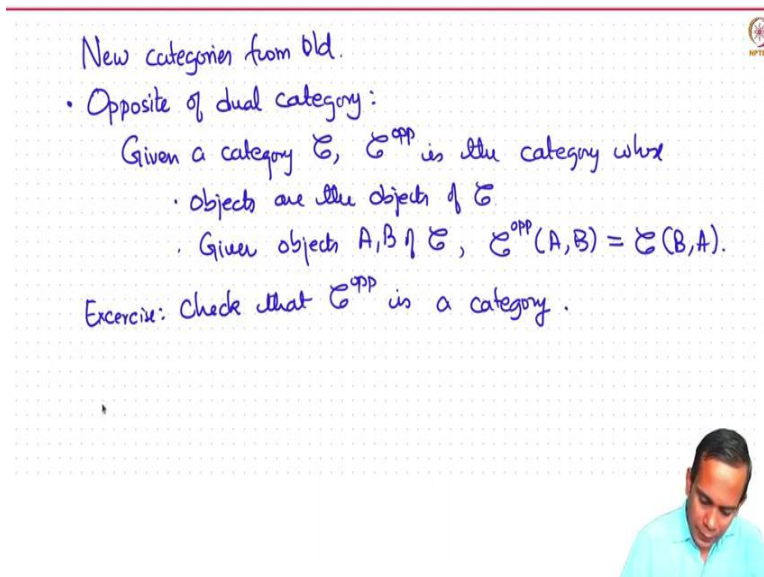 New categories from old.
• Opposite of dual category:
Given a category 𝒞, 𝒞ᵒᵖᵖ is the category whose
• objects are the objects of 𝒞
• Given objects A, B of 𝒞, 𝒞ᵒᵖᵖ(A,B) = 𝒞(B,A).
Excercise: Check that 𝒞ᵒᵖᵖ is a category.
NPTEL